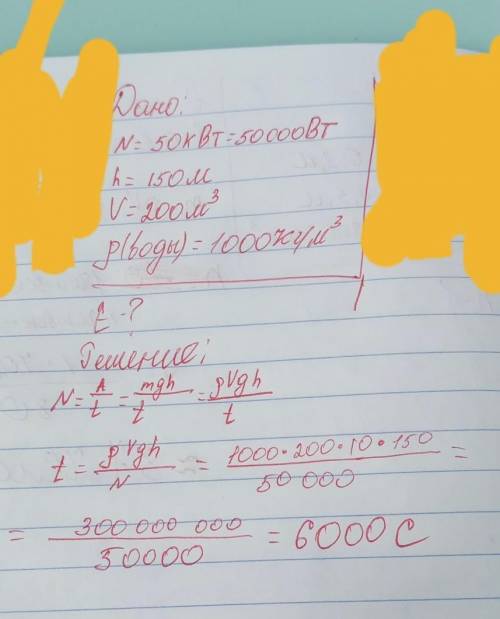 Дано:
N = 50кВт = 50000Вт
h = 150м
V = 200м³
ρ(воды) = 1000кг/м³
t - ?
Решение:
N = A/t = mgh/t = ρVgh/t
t = ρVgh/N = 1000·200·10·150/50 000 =
= 300 000 000/50000 = 6000 С